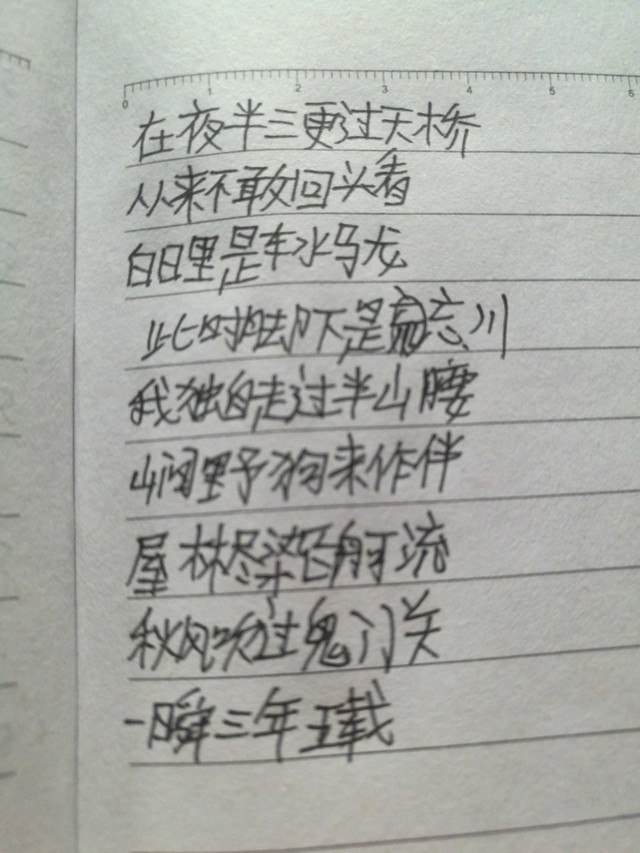 0 1 2 3 4 5 6
在夜半三更过天桥
从来不敢回头看
白日里是车水马龙
此时脚下是忘川
我独自走过半山腰
山间野狗来作伴
屋林尽染百舸流
秋风吹过鬼门关
一瞬三年五载